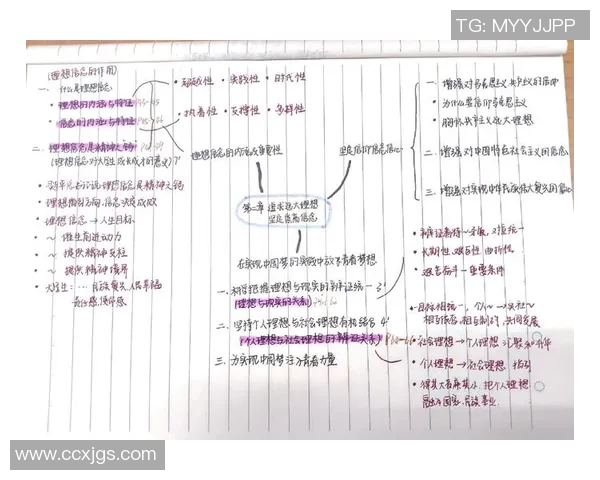 TG: MYYJJPP
(理想信念的作用)
一. 什么是理想信念
· 理想的内涵与特征
· 信念的内涵与特征
· 超越性 · 实践性 · 时代性
· 执着性 · 支撑性 · 多样性
二. 理想信念是精神之钙
(理想信念对大学生成长成才的意义) 7'
理想信念的内涵及重要性
坚定信仰信念信心
一. 增强对马克思主义、共产主义的信仰
· 为什么要信仰马克思主义
· 胸怀共产主义远大理想
二. 增强对中国特色社会主义的信念
三. 增强对实现中华民族伟大复兴的信心
第二章 追求远大理想
坚定崇高信念
· 理想信念 → 人生目标
· ~ 催生前进动力
· ~ 提供精神支柱
· ~ 提供精神境界
· 大学生: … 民族复兴、人民幸福
责任感、使命感
在实现中国梦的实践中放飞青春梦想
一. 科学把握理想与现实的辩证统一 3'
(理想与现实的关系)
二. 坚持个人理想与社会理想有机结合 4'
(个人理想与社会理想的辩证关系)
三. 为实现中国梦注入青春力量
· 辩证看待~矛盾, 对立统一
· 长期性 艰巨性 曲折性
· 艰苦奋斗 — 重要条件
相互依存, 相互制约, 共同发展
· 社会理想 → 个人理想
· 个人理想 → 社会理想 指引
融入国家、民族事业
www.ccxjgs.com